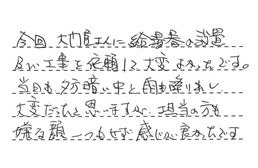 今回 大門屋さんに給湯器の設置
及び工事を依頼して大変よかったです。
当日も夕方暗い中と雨も降り出し
大変だったと思いますが、担当の方も
嫌な顔一つもせず感じが良かったです